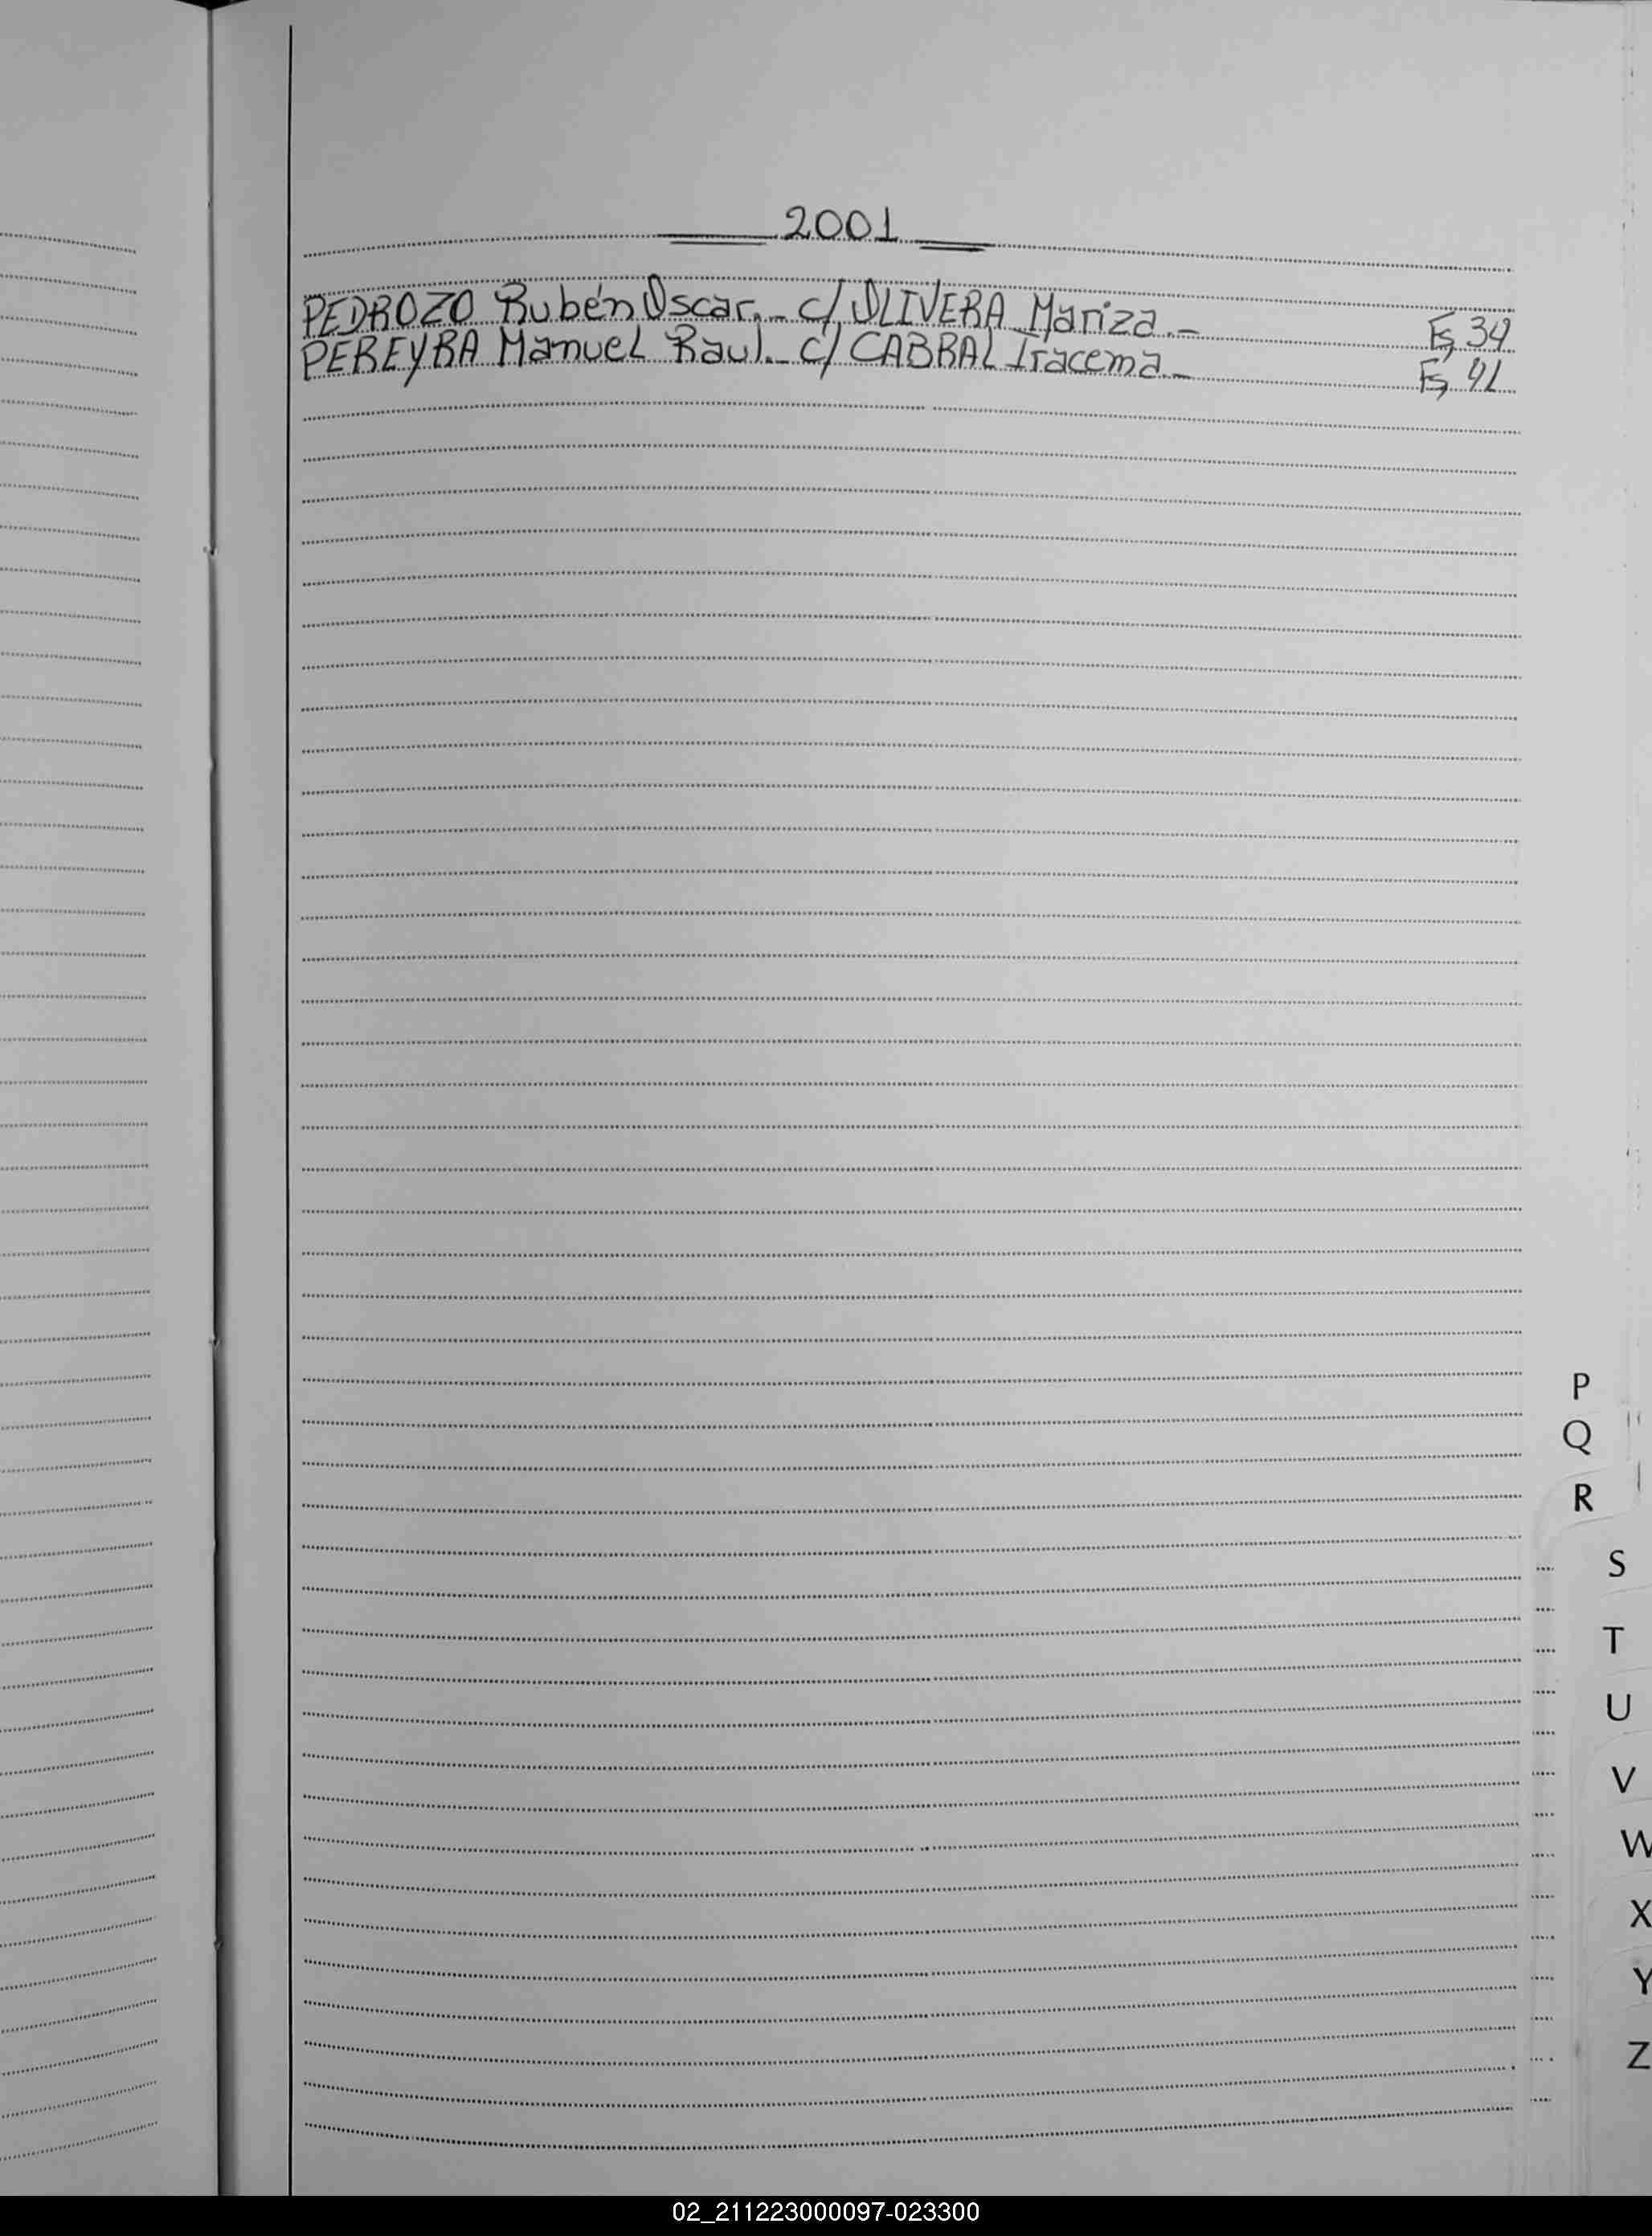 2001
PEDROZO Rubén Oscar.- c/ OLIVERA Mariza.- Fs 34
PEREYRA Manuel Raul.- c/ CABRAL Iracema.- Fs 41
P
Q
R
S
T
U
V
W
X
Y
Z
02_211223000097-023300